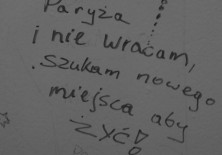 Paryża
i nie wracam,
szukam nowego
miejsca aby
ŻYĆ!